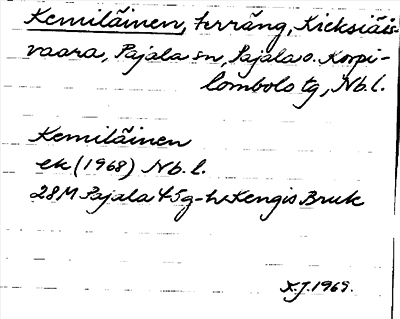 Kemiläinen, terräng, Kieksiäis-
vaara, Pajala sn, Pajala o. Korpi-
lombolo tg, Nb.l.
Kemiläinen
ek (1968) Nb.l.
28M Pajala 45g-h Kengis Bruk
X.J.1969.